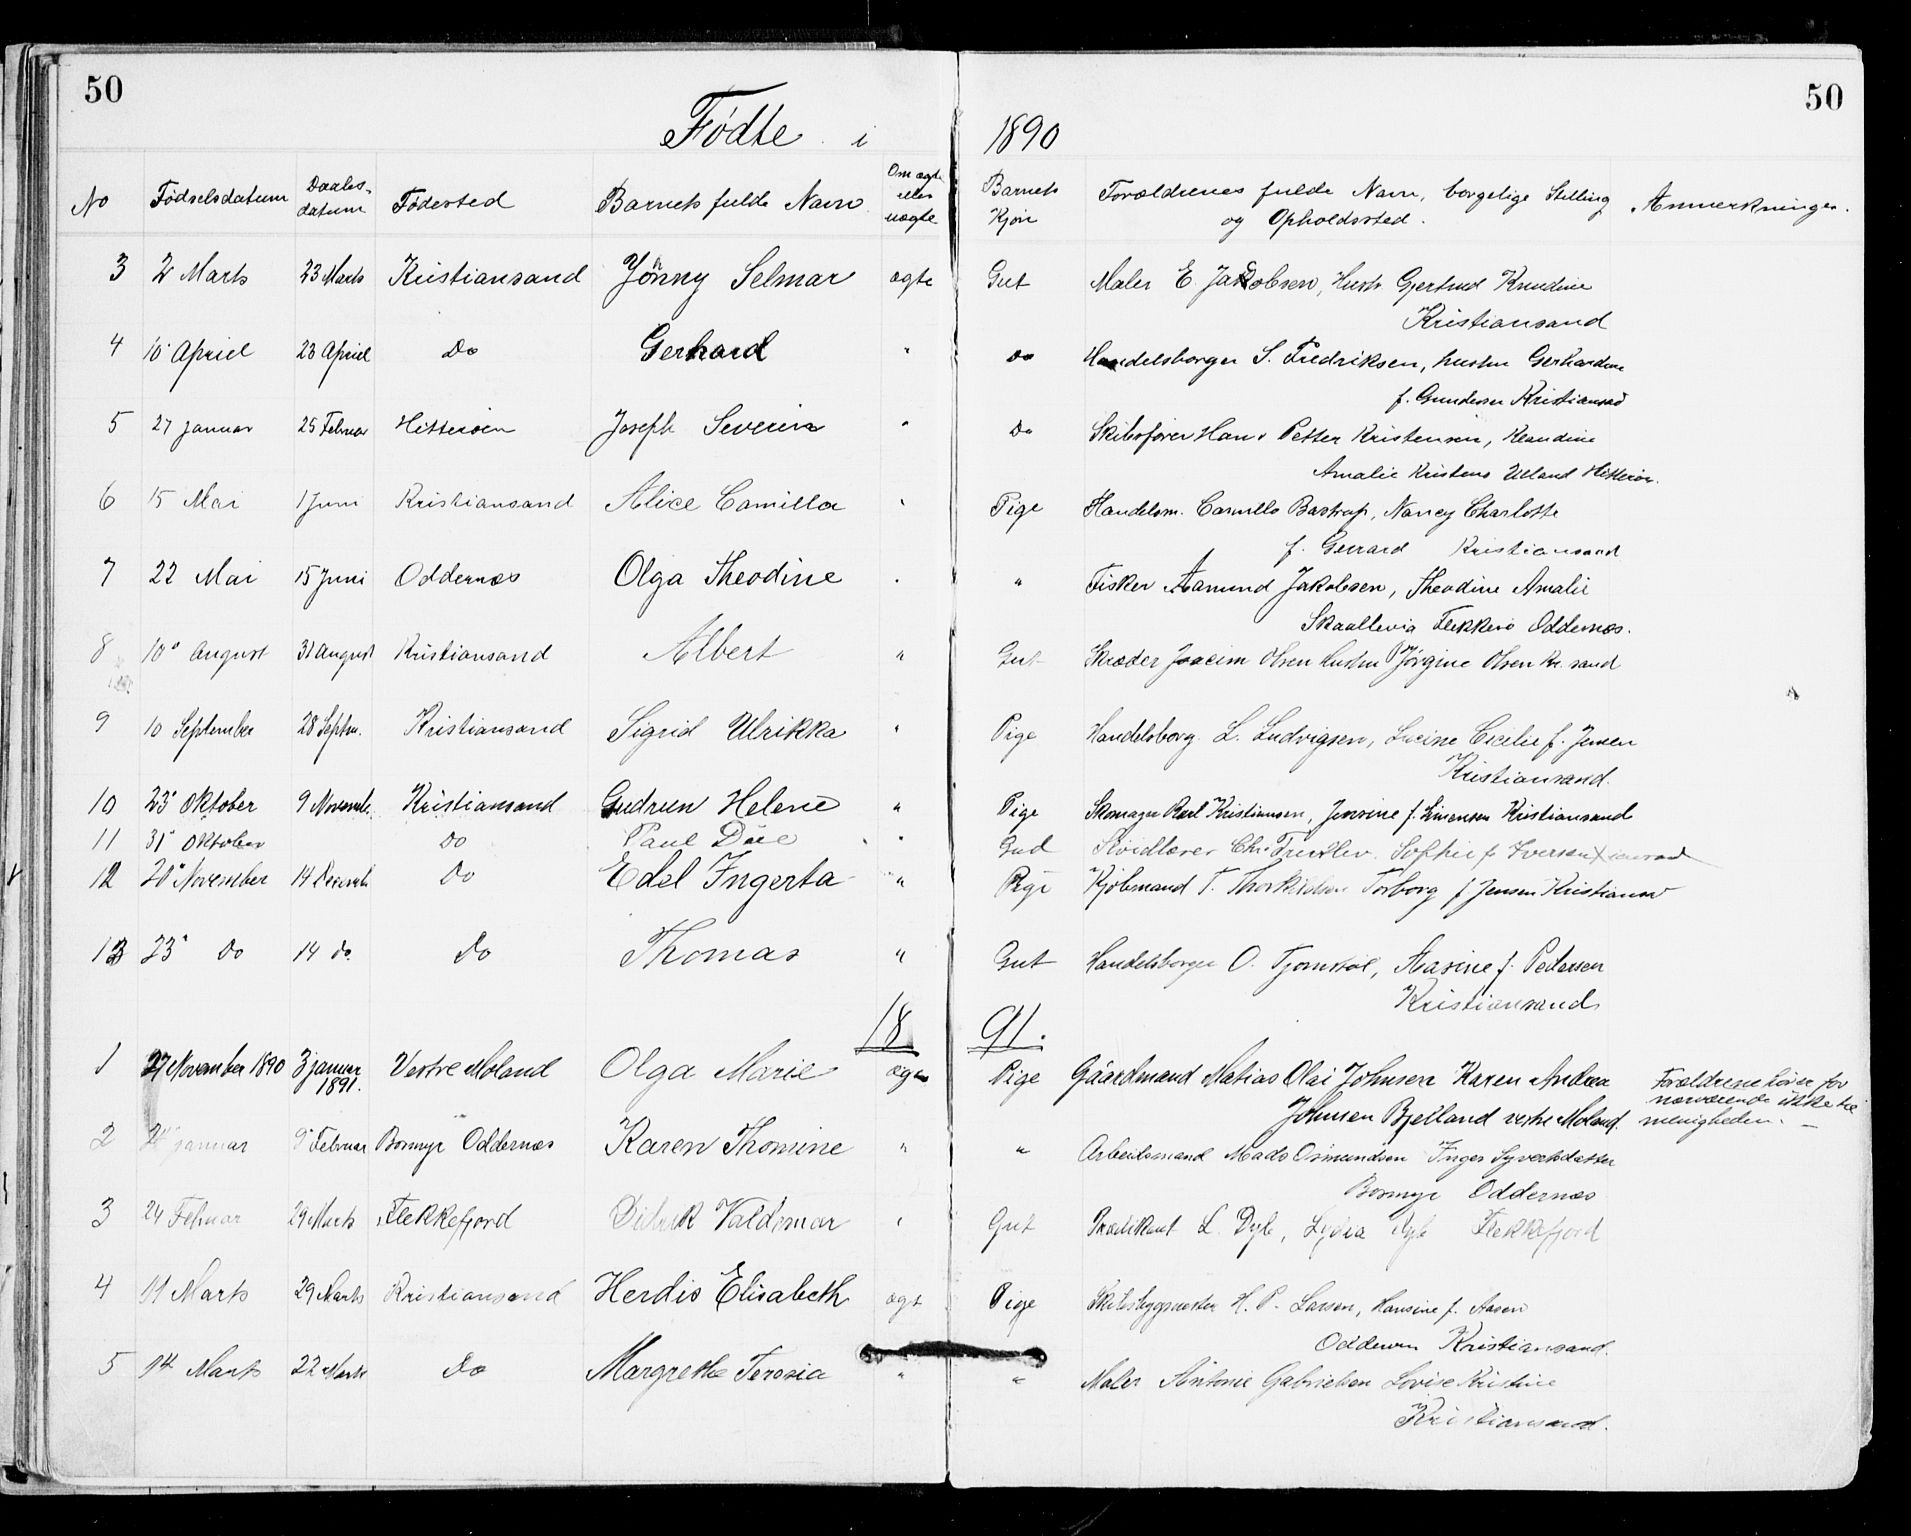 50
50
Fødte i 1890
No Fødselsdatum Daabs- datum Fødested Barnets fulde Navn Om ægte eller uægte Barnets Kjøn Forældrenes fulde Navn, borgelige Stilling og Opholdssted. Anmerkninger.
3 2 Marts 23 Marts Kristiansand Jonny Selmar ægte Gut Maler E. Jakobsen, Hustr. Gjertrud Knudine
Kristiansand
4 10 Apriel 23 Apriel Do Gerhard " Do Handelsborger S. Fredriksen, hustru Gerhardine
f. Gundersen Kristiansand
5 27 januar 25 Februar Hitterøen Joseph Severin " Do Skibsfører Hans Petter Kristensen,
Amalie Kristens Ueland Hitterøe.
6 15 Mai 1 Juni Kristiansand Alice Camilla " Pige Handelsm. Camillo Bastrup, Nancy Charlotte
f. Gerrard Kristiansand
7 22 Mai 15 Juni Oddernæs Olga Theodine . " Fisker Aamund Jakobsen, Theodine Amalie
Skaallevia Flekkerø Oddernæs.
8 10 August 31 August Kristiansand Albert " Gut Skræder Joacim Olsen Hustru Jørgine Olsen Kr. sand
9 10 September 28 Septbr. Kristiansand Sigrid Ulrikka " Pige Handelsborg. L. Ludvigsen, Lucine Cicilie f. Jensen
Kristiansand.
10 23 Oktober 9 Novemb. Kristiansand Gudrun Helene " Pige Skomager Karl Kristiansen, Jensine f. Simensen Kristiansand
11 31 Oktober Do Paul Due " Gud Chr. Sophie f. Iversen
12 20 November 14 Decemb Do Edel Ingerta " Pige Kjøbmand T. Thorkildsen Torborg f. Jensen Kristiansand
13 23 Do 14 do. Do Thomas " Gut Handelsborger O. Aasine f. Pedersen
Kristiansand
1891.
1 27 November 1890 3 januar 1891. Vestre Moland Olga Marie ægte Pige Gåardmand Matias Olai Johnsen Karen Andrea Forældrene hører for
Johnsen Bjelland vestre Moland. nærværende ikke til
menigheden.
2 januar 9 Februar Bosmyr Oddernæs Karen Thomine " " Arbeidsmand Mads Osmundsen Inger Syvertsdatter
Bosmyr Oddernæs
3 24 Februar 29 Marts Flekkefjord Didrik Valdemar " Gut Prædikant L. Dyb, Lydia Dyb Flekkefjord
4 11 Marts 29 Marts Kristiansand Herdis Elisabeth ægt Pige Skibsbygmester H. P. Larsen, Hansine f. Aasen
Odderøen Kristiansand.
5 14 Marts 22 Marts Do Margrethe Teresia " " Maler Antonie Gabrielsen Lovise Kristine
Kristiansand.